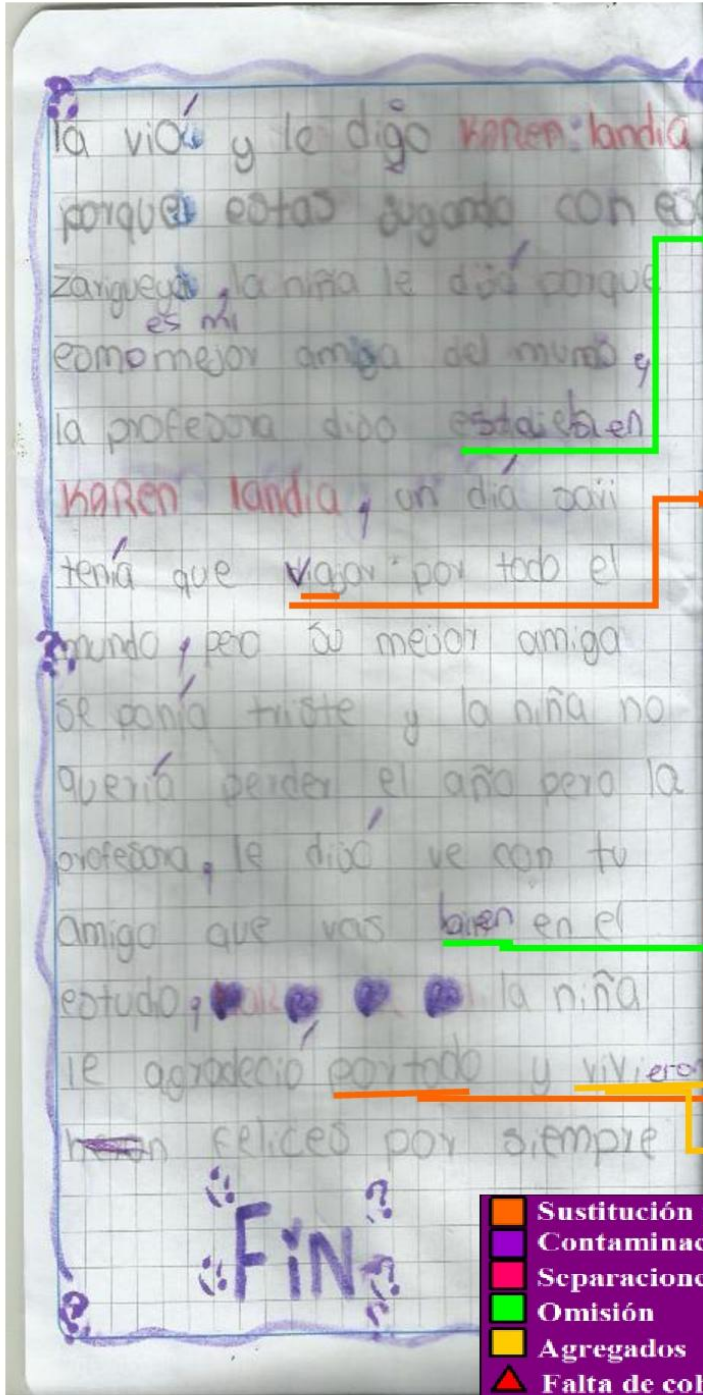 la vió y le digo KAREN landia
porque estas jugando con esa
zarigueya, la niña le dijó porque
es mi
como mejor amiga del mumo,
la profesora dijo estaiebien
KAREN landia, un día savi
tenía que viajar por todo el
mundo, pero su mejor amiga
se ponía triste y la niña no
quería perder el año pero la
profesora, le dijó ve con tu
amigo que vas bien en el
estudo, la niña
le agradeció por todo y vivieron
felices por siempre
FiN
Sustitución
Contaminac
Separacione
Omisión
Agregados
Falta de coh